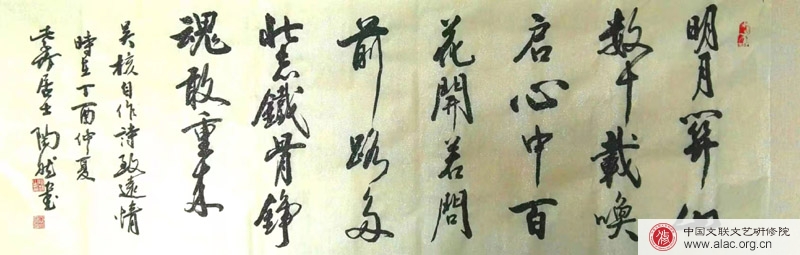 明月
数十載喚
启心中百
花開若問
前路多
壮志鐵骨錚
魂敢重来
吴核自作詩致遠情
時在丁酉仲夏
居士陶然書
中国文联文艺研修院
www.alac.org.cn